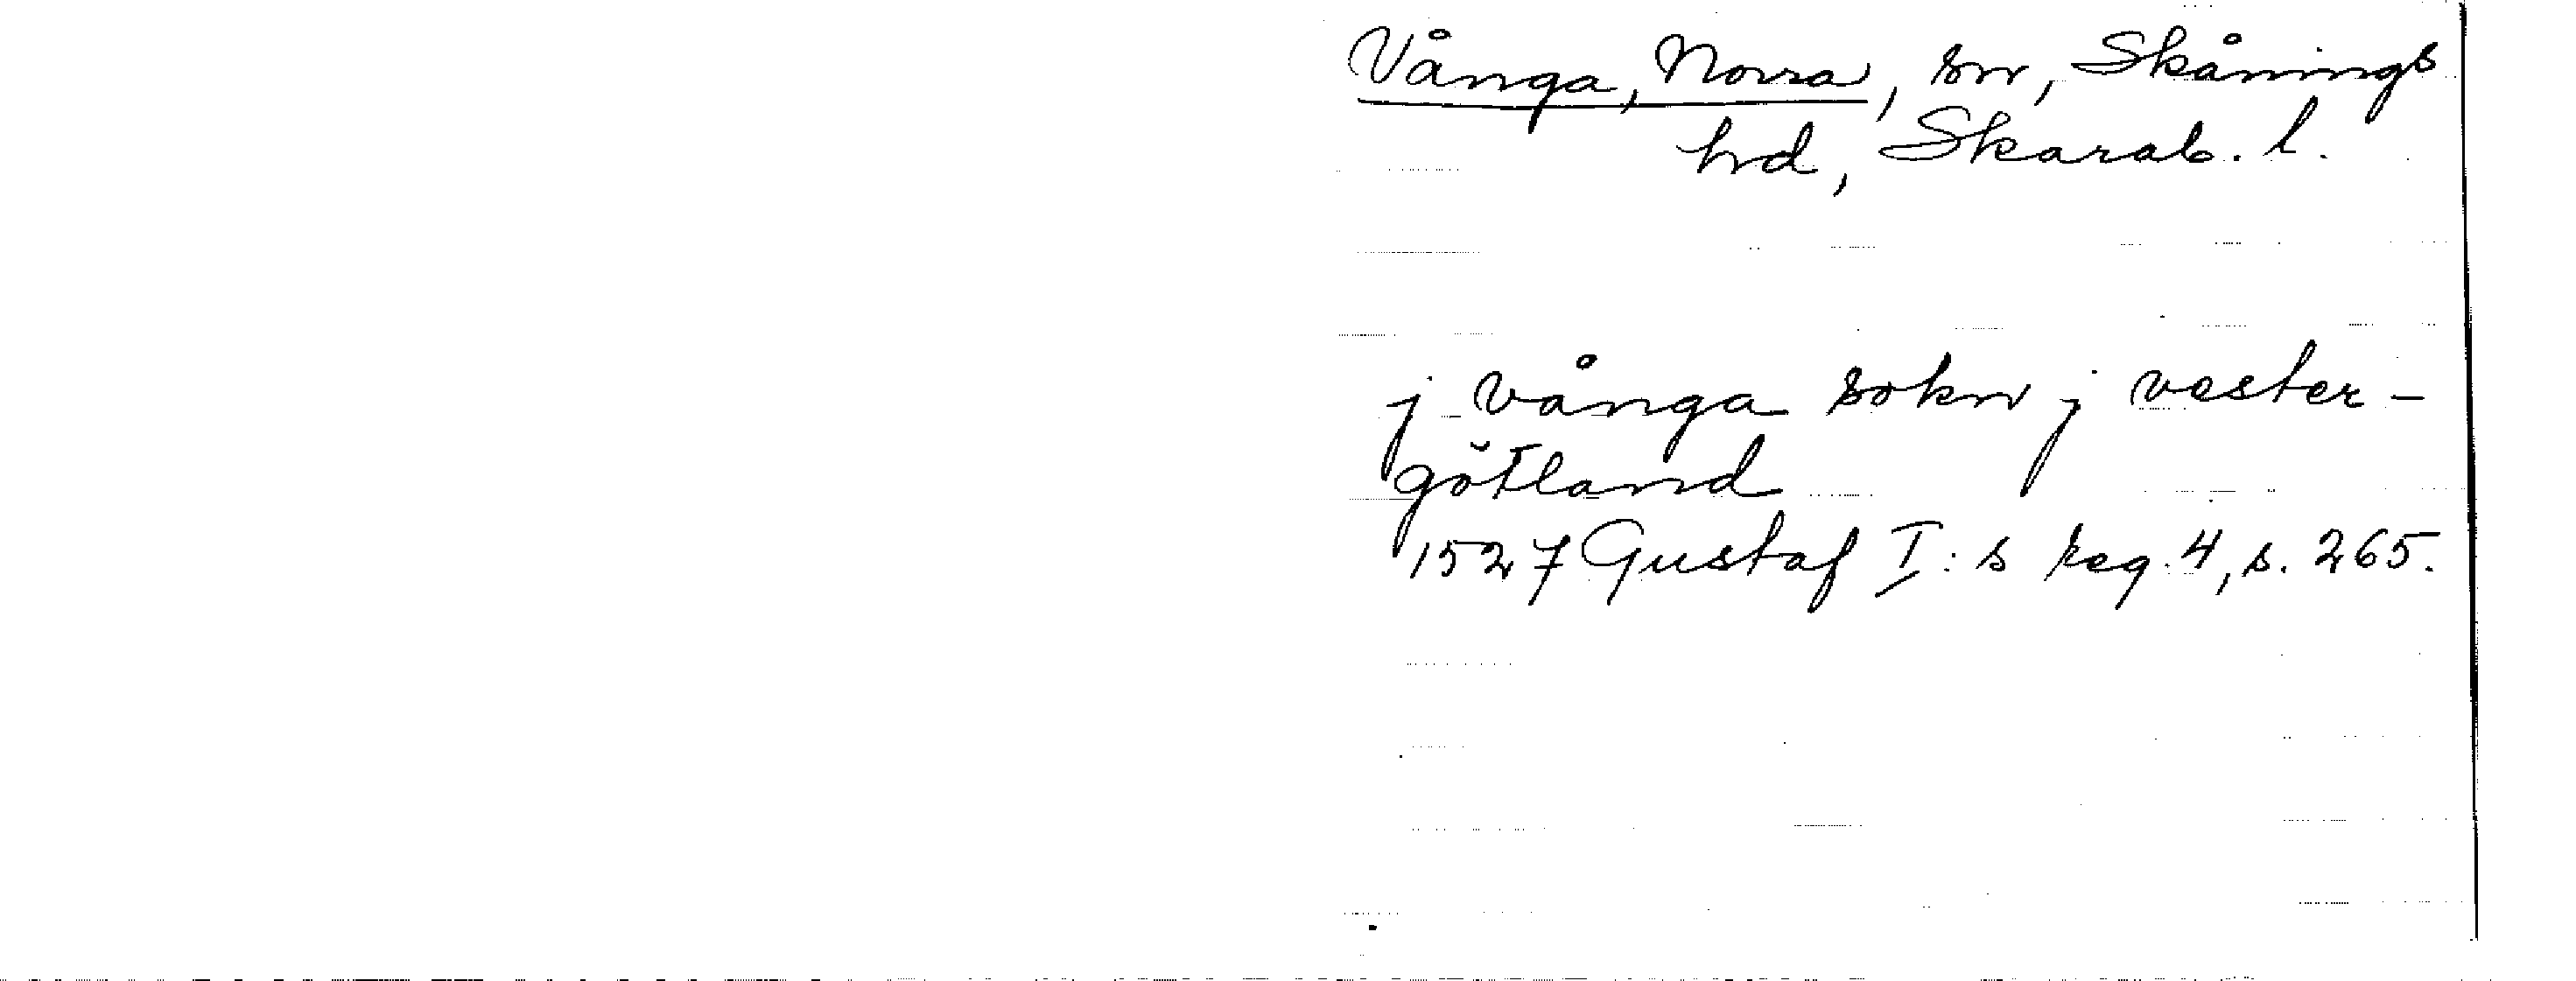 Vånga, Norra, sn, Skånings
hd, Skarab. l.
j vånga sokn j vester-
götland
1527 Gustaf I:s reg. 4, s. 265.